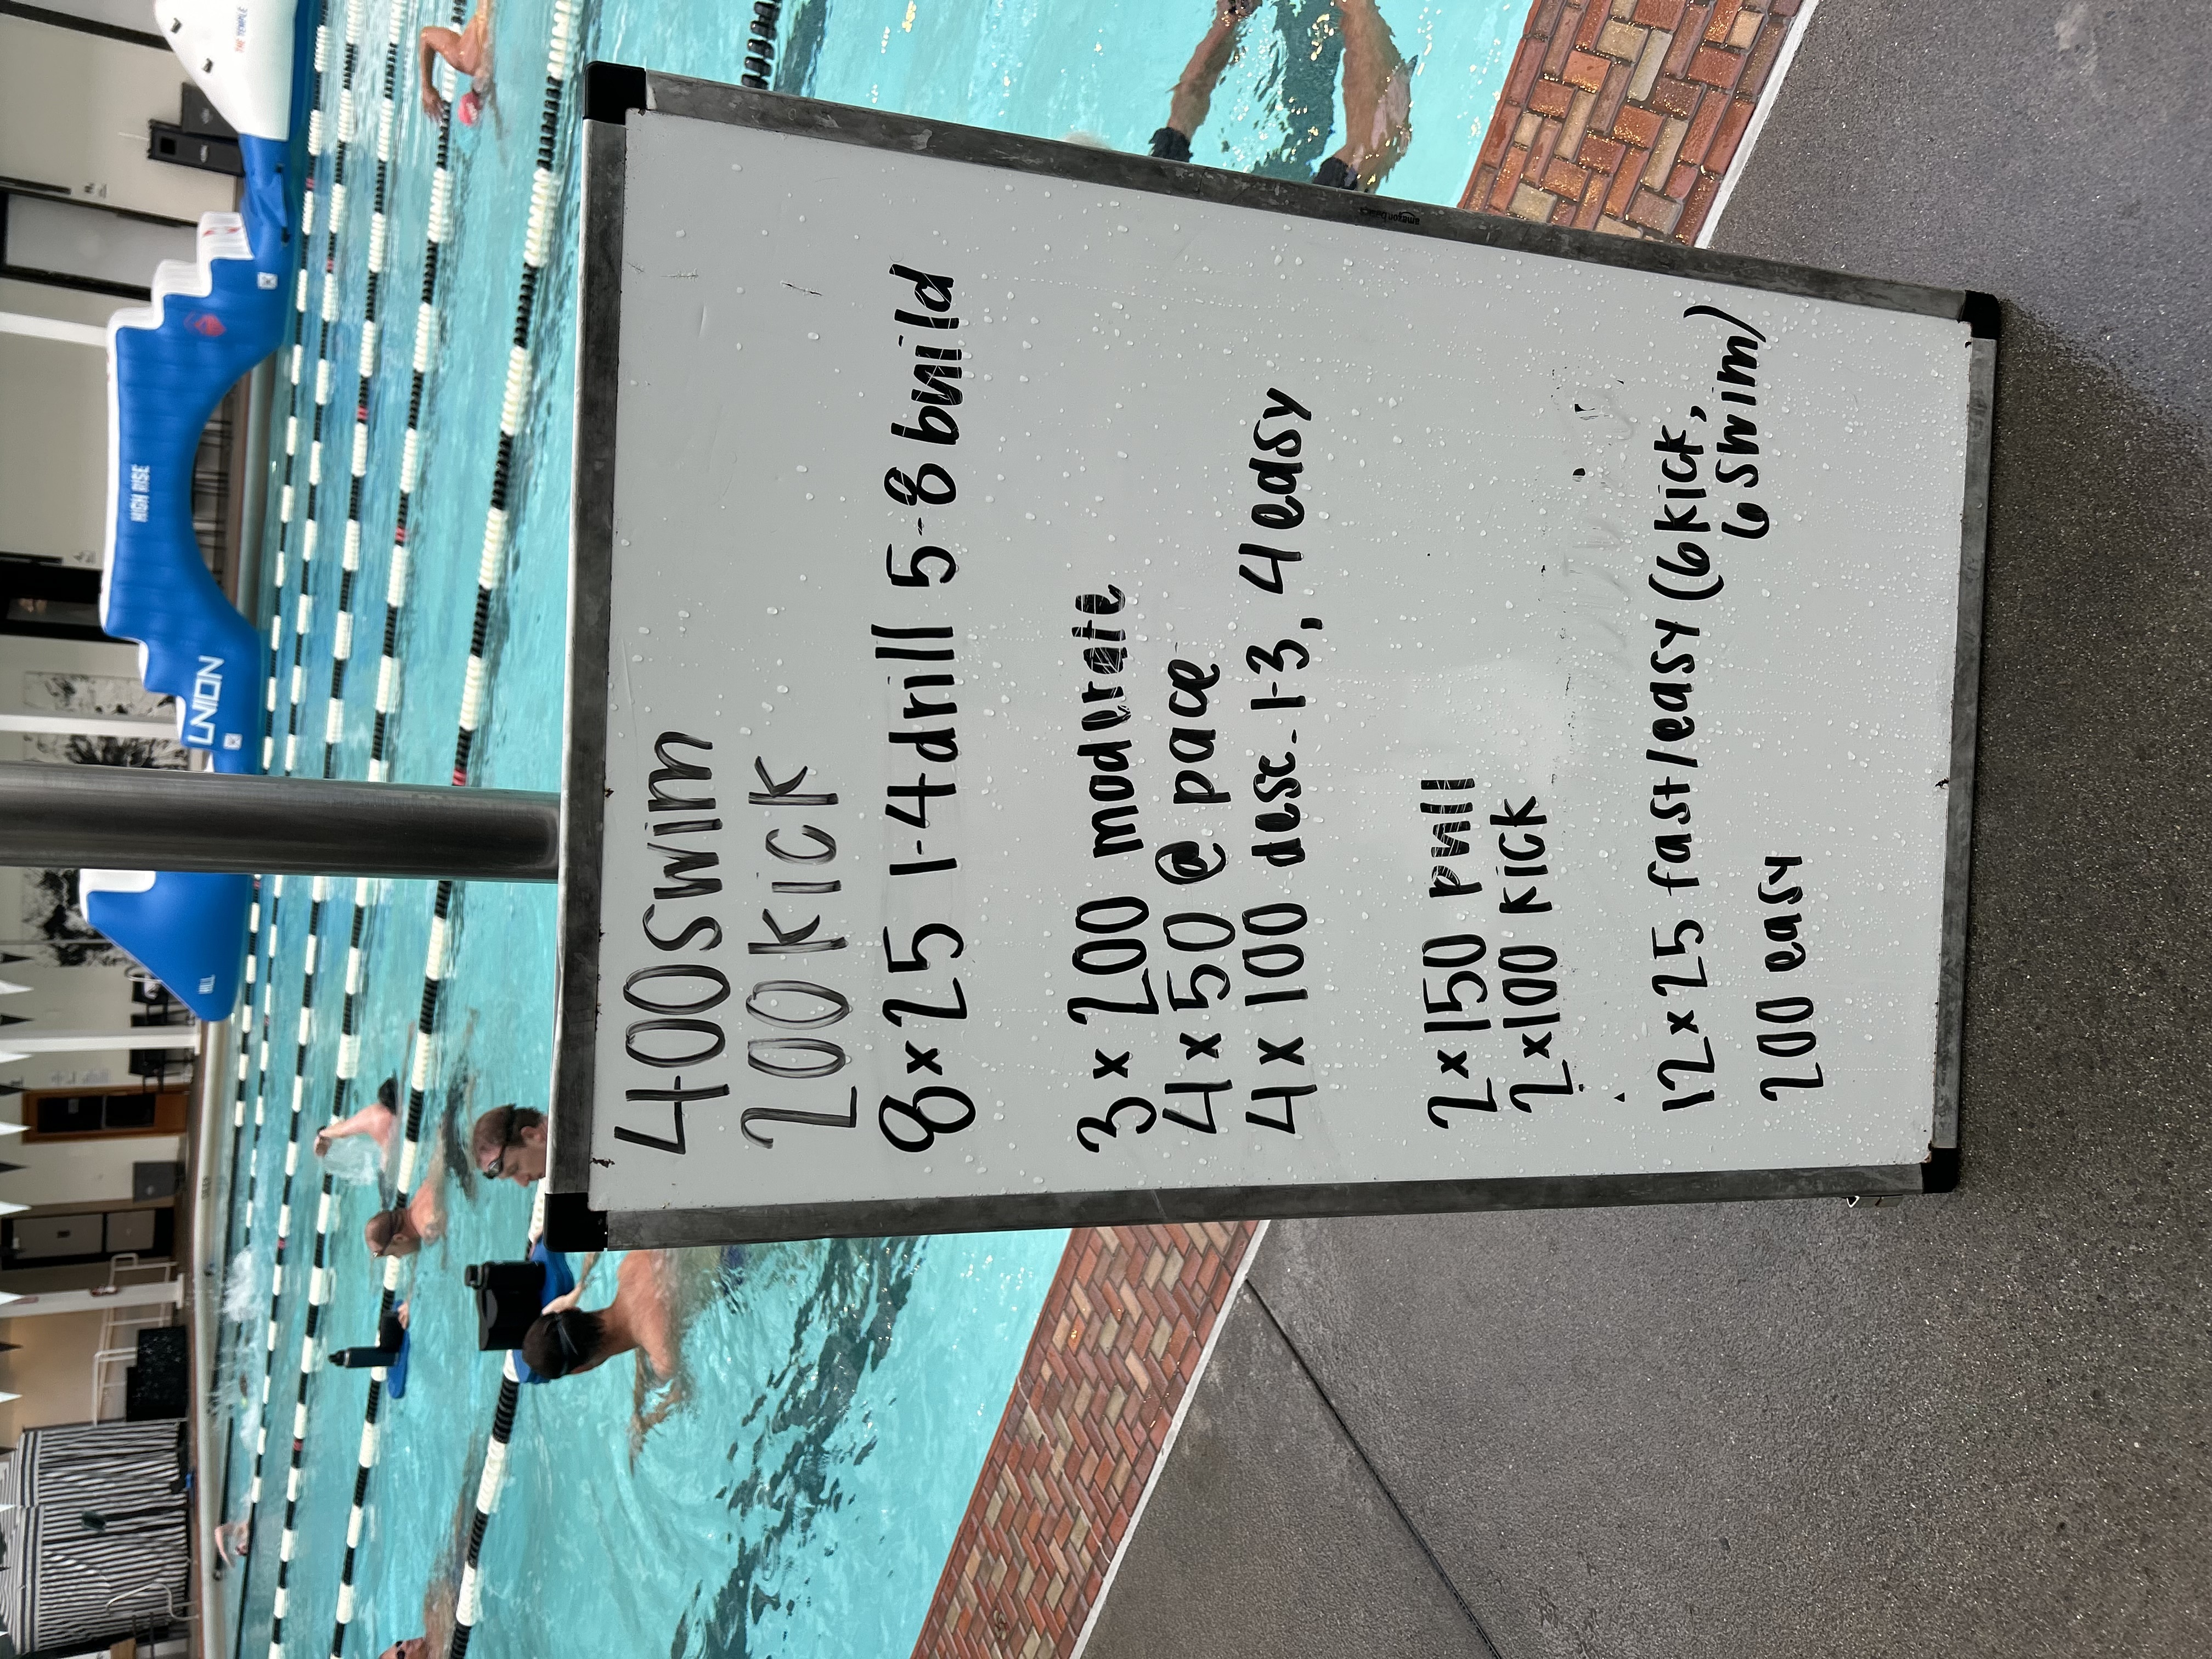 400 swim
200 kick
8 x 25 1-4 drill 5-8 build
3 x 200 moderate
4 x 50 @ pace
4 x 100 desc. 1-3, 4 easy
2 x 150 pull
2 x 100 kick
12 x 25 fast/easy (6 kick,
6 swim)
200 easy
amazon basics
UNION
HIGH RISE
THE TEMPLE
HILL